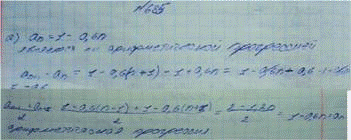 №685
а) an = 1 - 0,6n
является ли арифметической прогрессией
an+1 - an = 1 - 0,6(n+1) - 1 + 0,6n = 1 - 0,6n + 0,6 - 1 - 0,6n
= 1-0,6(n-1)+1-0,6(n+1) / 2 = 2-1,2n / 2 = 1-0,6n = an
арифметическая прогрессия